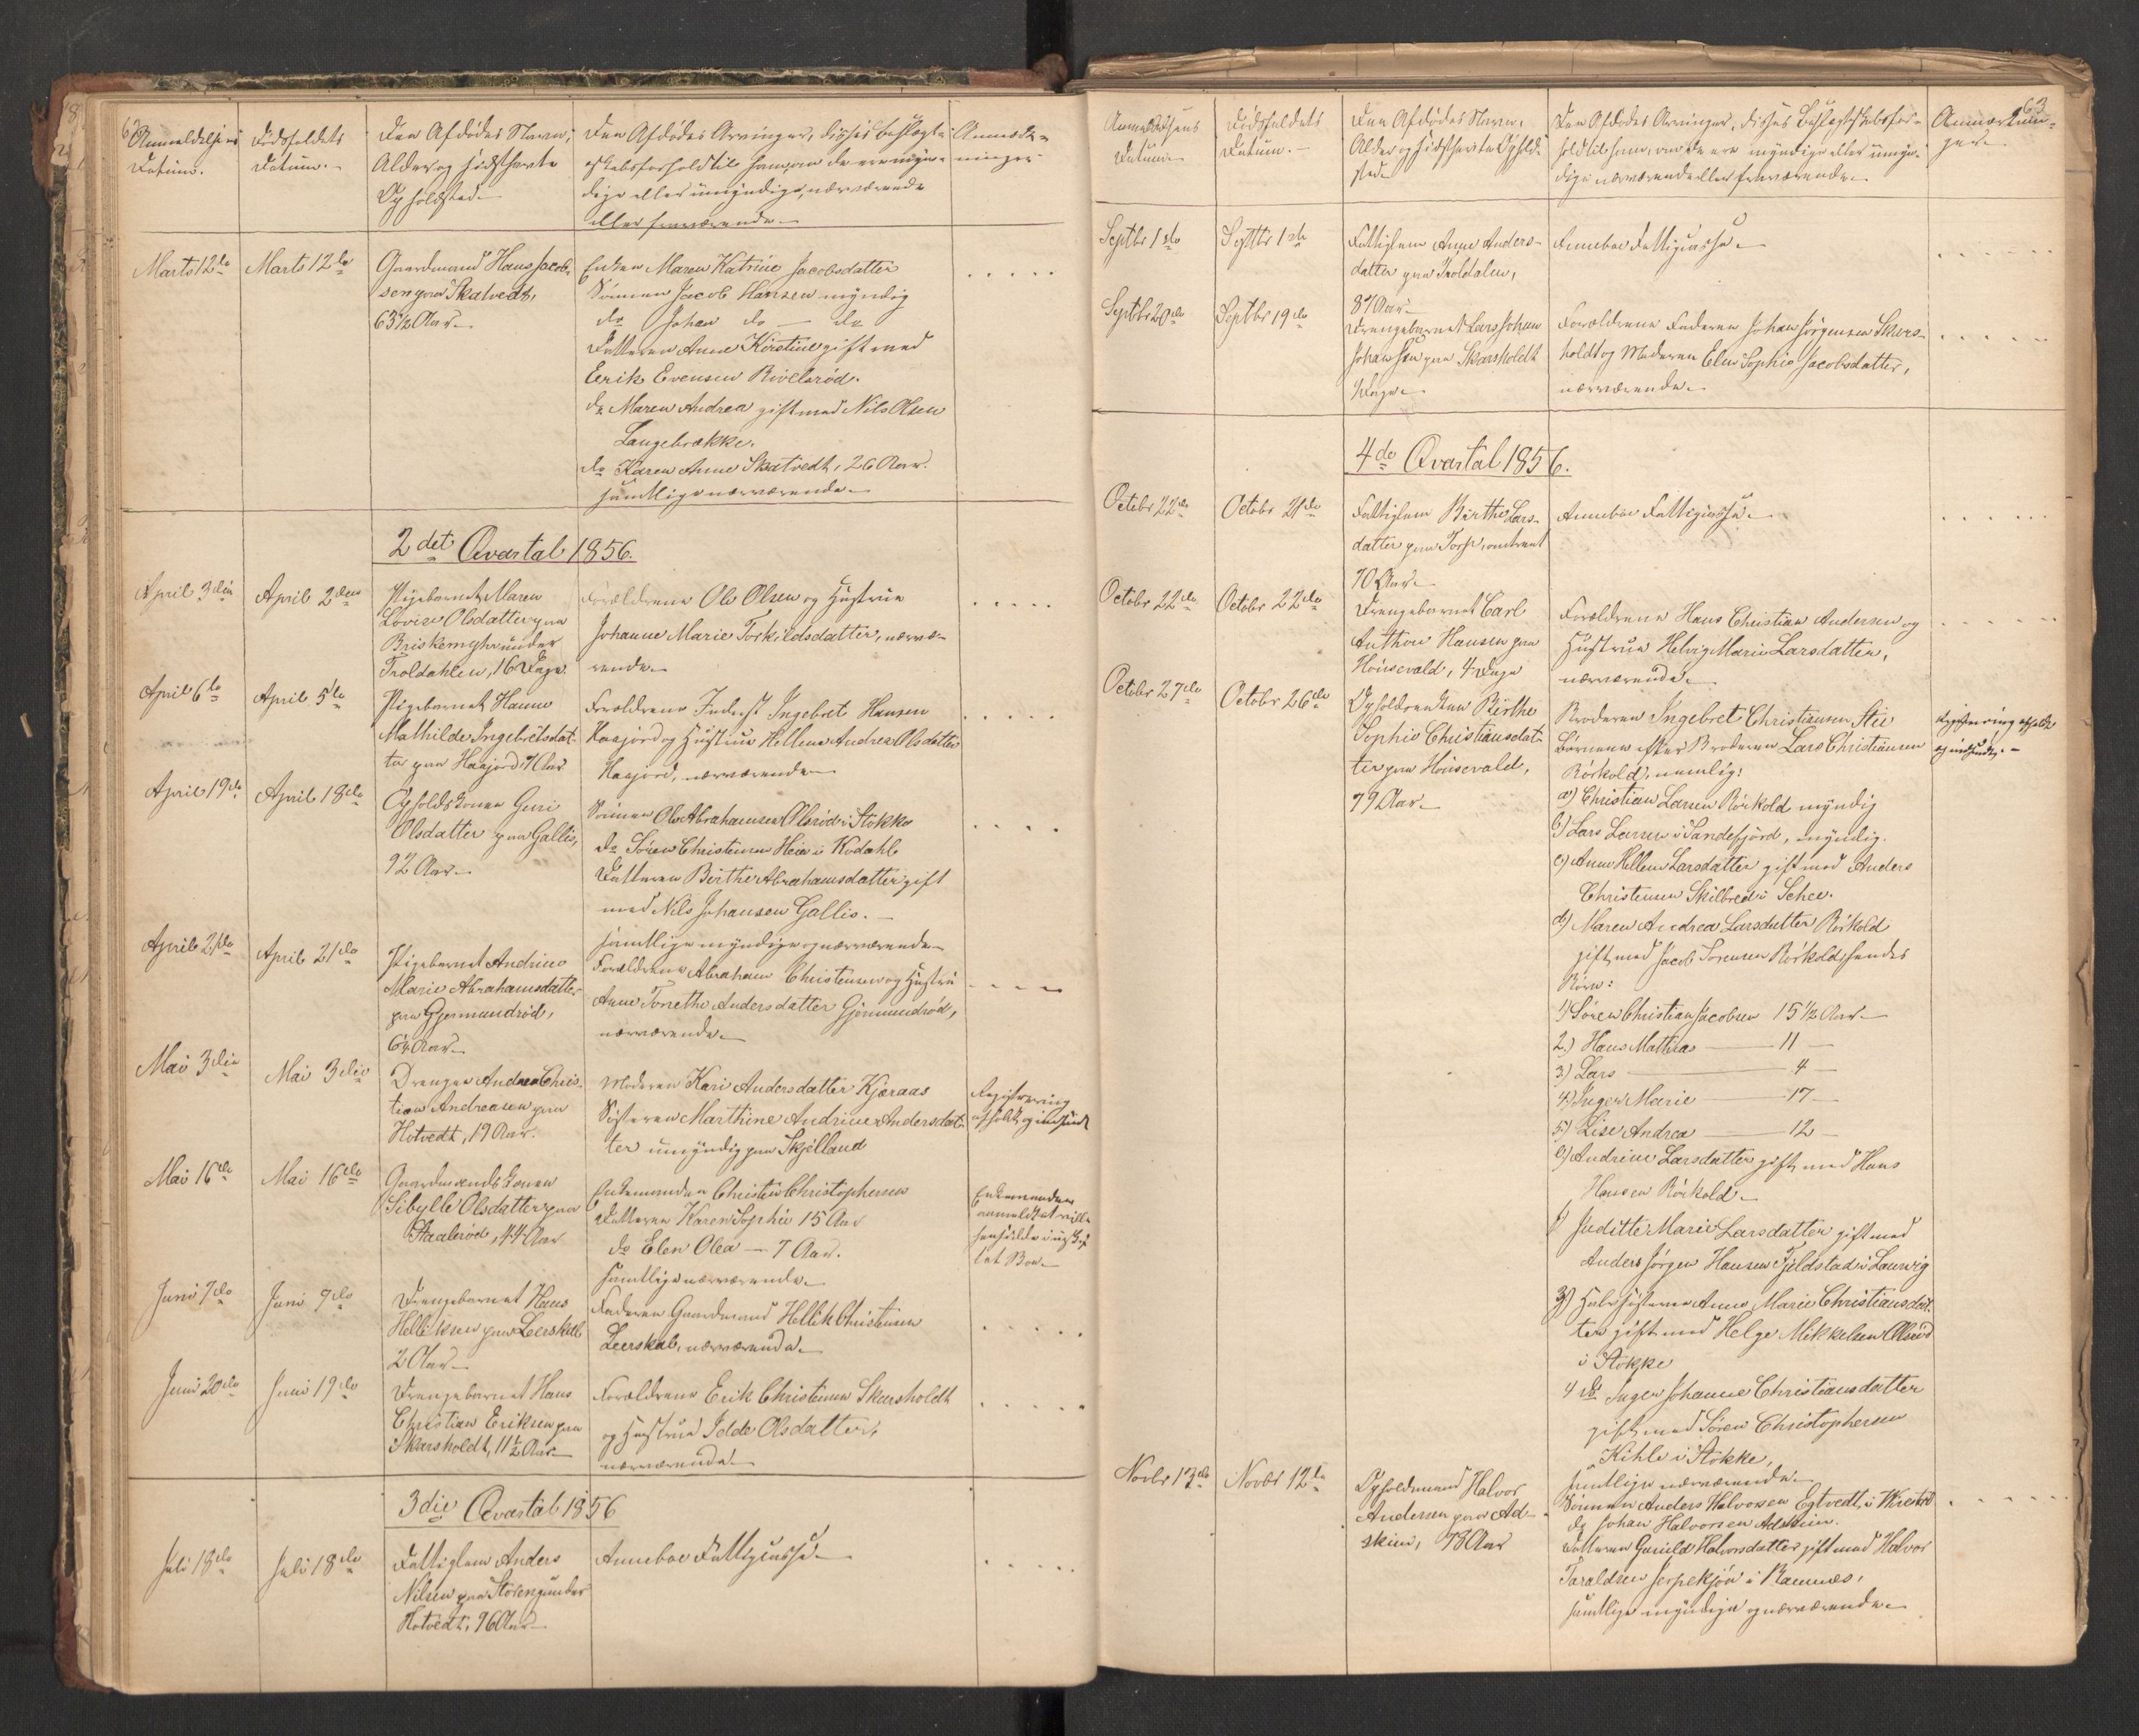 62
Anmeldelsens
Datum.
Dødsfaldets
Datum.
Den Afdødes Navn,
Alder og sidst havte
Opholdsted.
Den Afdødes Arvinger, disses beslægt-
skabsforhold til ham, om de ere myn-
dige eller umyndige, nærværende
eller fraværende.
Anmærk-
ninger.
Marts 12te
Marts 12te
Gaardmand Hans Jacob-
sen paa Skatvedt,
63 1/2 Aar.
Enken Maren Katrine Jacobsdatter
Sønnen Jacob Hansen myndig
do Johan do — do
Datteren Anne Kirstine gift med
Eerik Evensen
do Maren Andrea gift med Nils Olsen
Langebrække.
do Karen Anne Skatvedt, 26 Aar.
samtlige nærværende.
2det Qvartal 1856.
April 3die
April 2den
Pigebarnet Maren
Lovise Olsdatter paa
under
Troldahlen, 16 Dage.
Forældrene Ole Olsen og Hustrue
Johanne Marie Torkildsdatter, nærvæ-
rende.
April 6te
April 5te
Pigebarnet Hanne
Mathilde Ingebretsdat-
ter paa Haajord, Aar
Forældrene Inderst Ingebret Hansen
Haajord og Hustrue Hellene Andrea Olsdatter
Haajord, nærværende.
April 19de
April 18de
Opholdskonen Guri
Olsdatter paa Gallis,
92 Aar.
Sønnen Ole Abrahamsen Olsrød i Stokke
do Søren Christensen Heie i Kodahl
Datteren Birthe Abrahamsdatter gift
med Nils Johansen Gallis.
samtlige myndige og nærværende.
April 21de
April 21de
Pigebarnet Andrine
Marie Abrahamsdatter
paa Gjermundrød,
Aar.
Forældrene Abraham Christensen og Hustru
Anne Torethe Andersdatter Gjermundrød,
nærværende.
Mai 3die
Mai 3die
Drengen Andreas Chris-
tian Andreasen paa
Hotvedt, 19 Aar.
Moderen Kari Andersdatter Kjæraas
Søsteren Marthine Andrine Andersdat-
ter umyndig paa Skjelland
Registrering
afholdt og indsendt
Mai 16de
Mai 16de
Gaardmandskonen
Sibylle Olsdatter paa
Staalerød, 44 Aar
Enkemanden Christen Christophersen
Datteren Karen Sophie 15 Aar
do Elen Olea — 7 Aar.
samtlige nærværende.
Enkemanden
anmeldt at ville
hensidde i uskif-
tet Boe.
Juni 7de
Juni 7de
Drengebarnet Hans
Helliksen paa Leerskal
2 Aar.
Faderen Gaardmand Hellik Christensen
Leerskal, nærværende.
Juni 20de
Juni 19de
Drengebarnet Hans
Christian Eriksen paa
Skarsholdt, 11 1/2 Aar.
Forældrene Erik Christensen Skarsholdt
og Hustrue Idde Olsdatter,
nærværende.
3die Qvartal 1856
Juli 18de
Juli 18de
Fattiglem Anders
Nilsen paa Støren under
Hotvedt, 76 Aar.
Anneboe Fattigcasse.
63
Anmeldelsens
Datum.
Dødsfaldets
Datum.
Den Afdødes Navn,
Alder og sidst havte Ophold-
sted.
Den Afdødes Arvinger, disses Beslægtskabsfor-
hold til ham, om de ere myndige eller umyn-
dige nærværende eller fraværende.
Anmærknin-
ger.
Septbr 1ste
Septbr 1ste
Fattiglem Anne Anders-
datter paa Troldalen,
87 Aar.
Anneboe Fattigcasse.
Septbr 20de
Septbr 19de
Drengebarnet Lars Johan
Johansen paa Skarsholdt
Dage.
Forældrene Faderen Johan Jørgensen Skars-
holdt og Moderen Elen Sophie Jacobsdatter,
nærværende.
4de Qvartal 1856.
Octobr 22de
Octobr 21de
Fattiglem Birthe Lars-
datter paa Torp, omtrent
70 Aar.
Anneboe Fattigcasse.
Octobr 22de
Octobr 22de
Drengebarnet Carl
Anthon Hansen paa
Hønsevald, 4 Dage
Forældrene Hans Christian Andersen og
Hustrue Helvig Marie Larsdatter,
nærværende.
Octobr 27de
Octobr 26de
Opholdsenken Birthe
Sophie Christiansdat-
ter paa Hønsevald,
79 Aar.
Broderen Ingebret Christiansen Stie
Børnene efter Broderen Lars Christiansen
Rørkold, nemlig:
a) Christian Larsen Rørkold myndig
b) Lars Larsen i Sandefjord, myndig.
c) Anne Hellene Larsdatter gift med Anders
Christensen Skilbred i Schee.
d) Maren Andrea Larsdatter Rørkold
gift med Jacob Sørensen Rørkold, hendes
Børn:
1) Søren Christian Jacobsen 15 1/2 Aar.
2) Hans Mathias — 11 —
3) Lars — 4 —
4) Inger Marie — 17 —
5) Lise Andrea — 12 —
e) Andrine Larsdatter gift med Hans
Hansen Rørkold.
f) Juditte Marie Larsdatter gift med
Anders Jørgen Hansen Fjeldstad i Laurvig
3) Halvsøsteren Anne Marie Christiansdat-
ter gift med Helge Mikkelsen Olsrød
i Stokke
4 do Inger Johanne Christiansdatter
gift med Søren Christophersen
Kihle i Stokke,
samtlige nærværende.
Registrering afholdt
og indsendt.
Novbr 13de
Novbr 12te
Opholdsmand Halvor
Andersen paa Ad-
skien, 78 Aar
Sønnen Anders Halvorsen Egtvedt, i
do Johan Halvorsen Adskien.
Datteren Gunild Halvorsdatter gift med Halvor
Taraldsen i Ramnæs,
samtlige myndige og nærværende.